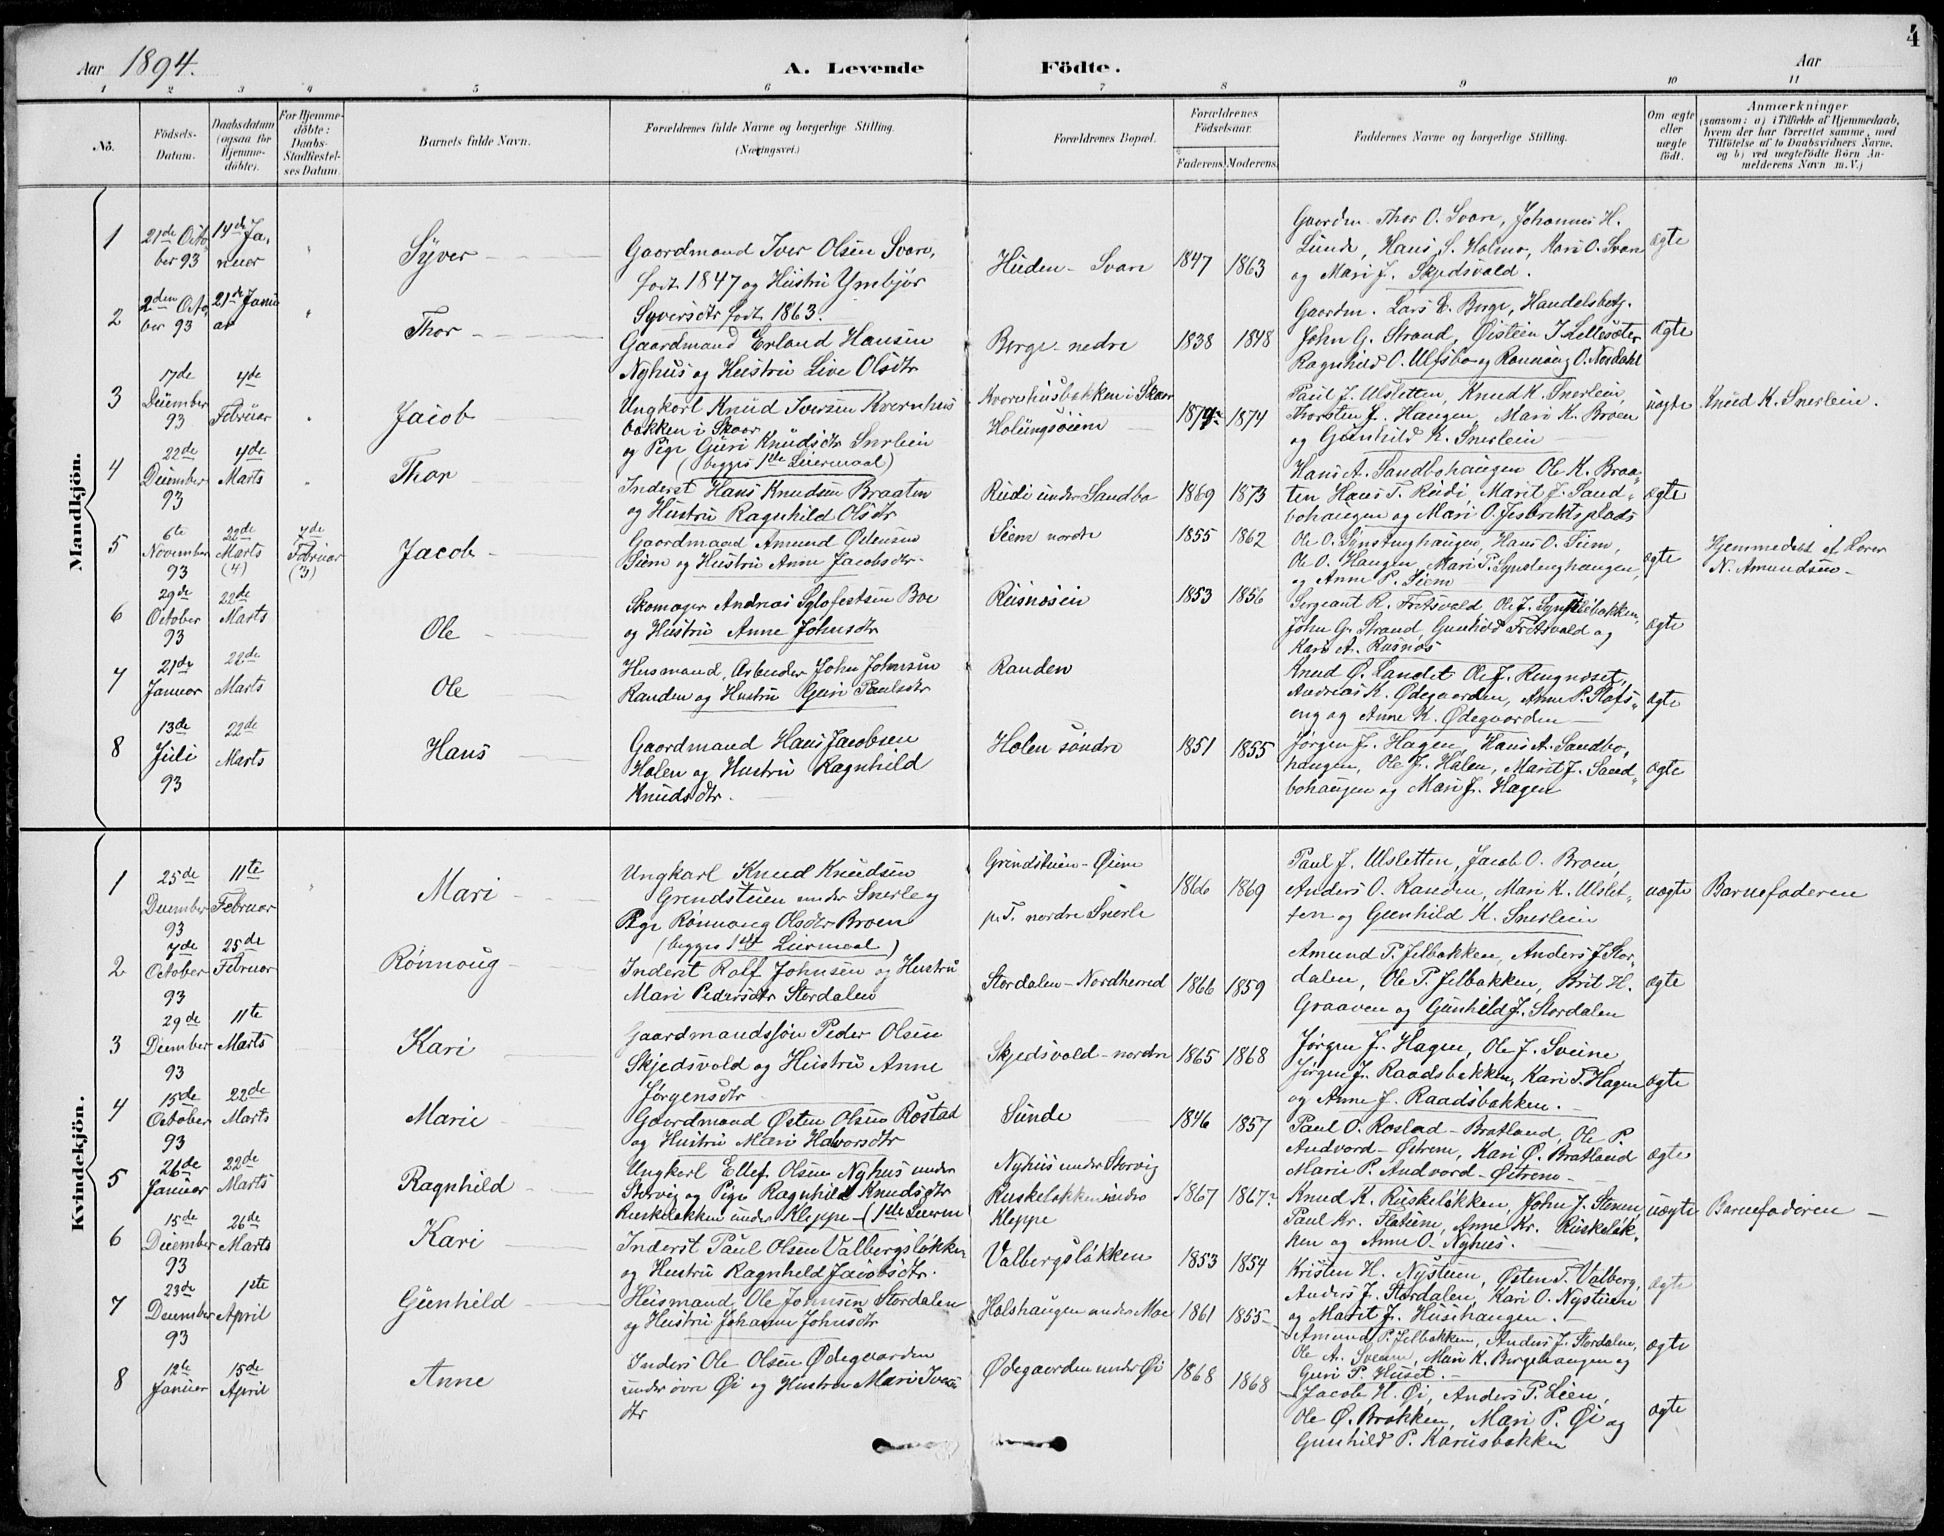 4
Aar 1894.
A. Levende Födte.
Aar
1 2 3 4 5 6 7 8 9 10 11
No.
Födsels-Datum.
Daabsdatum (ogsaa for Hjemme-döbte).
For Hjemme-döbte: Daabs-Stadfæstel-ses Datum.
Barnets fulde Navn.
Forældrenes fulde Navne og borgerlige Stilling. (Næringsvei.)
Forældrenes Bopæl.
Forældrenes Födselsaar.
Faderens. Moderens.
Faddernes Navne og borgerlige Stilling.
Om ægte eller uægte født.
Anmærkninger
(saasom: a) i Tilfælde af Hjemmedaab,
hvem der har forrettet samme, med
Tilföielse af to Daabsvidners Navne,
og b) ved uægtefödte Börn An-
melderens Navn m. V.)
Mandkjön.
1
21de Octo
ber 93
14de Ja,
nuar
Syver
Gaardmand Iver Olsen Svare,
født 1847 og Hustru Ymbjør
Syversdtr født 1863.
Heden - Svare
1847 1863
Gaardm. Thor O. Svare, Johannes H.
Sunde, Hans S. Holmo, Kari O. Svare
og Mari J. Skjedsvold.
ægte
2
2den Octo
ber 93
21de Janu
ar
Thor
Gaardmand Erland Hansen
Nyhus og Hustru Live Olsdtr
Berge nedre
1838 1848
Gaardm. Lars E. Berge, Handelsbetj.
John G. Strand, Øistein I. Lellesæter
Ragnhild O. Ulfsbo og Rønnaug O. Nordahl
ægte
3
17de
December
93
4de
Februar
Jacob
Ungkarl Knud Iversen Kvernhus
bakken i Skaar
og Pige Guri Knudsdtr Snerlein
(begges 1ste Leiermaal)
Kvernhusbakken i Skaar
Holungsøiene
1874
Paul J. Ulsletten, Knud K. Snerlein,
Thorsten J. Haugen, Mari K. Broen
og Gunhild K. Snerlein
uægte
Knud K. Snerlein.
4
22de
December
93
4de
Marts
Thor
Inderst Hans Knudsen Braaten
og Hustru Ragnhild Olsdtr
Rudi under Sandbo
1869 1873
Hans A. Sandbohaugen Ole K. Braa-
ten Hans T. Rudi Marit J. Sand-
bohaugen og Mari O. Jesbrektsplads
ægte
5
6te
November
93
22de
Marts
(4)
7de
Februar
(3)
Jacob
Gaardmand Amund Olsen
Siem og Hustru Anne Jacobsdtr.
Siem nordre
1855 1862
Ole O. Synstenghaugen, Hans O. Siem,
Ole O. Haugen, Mari P. Synstenghaugen,
og Anne P. Siem
ægte
Hjemmedøbt af Lærer
N. Amundsen
6
29de
October
93
22de
Marts
Ole
Skomager Andreas Sylfestsen Boe
og Hustru Anne Johnsdtr
Rusnøsien
1853 1856
Sergeant R. Fritsvold, Ole J. Synstebakken,
John G. Strand, Gunhild Fritsvold og
Kari A. Rusnøs
ægte
7
21de
Januar
22de
Marts
Ole
Husmand, Arbeider John Johnsen
Randen og Hustru Guri Paulsdtr
Randen
Knud O. Landet Ole J. Ringnæset,
Andreas K. Ødegaarden, Anne P. Klofs-
eng og Anne K. Ødegaarden
ægte
8
13de
Juli
93
22de
Marts
Hans
Gaardmand Hans Jacobsen
Holen og Hustru Ragnhild
Knudsdtr.
Holen søndre
1851 1855
Jørgen J. Hagen, Hans A. Sandbo-
haugen, Ole J. Holen, Marit J. Sand-
bohaugen og Mari J. Hagen
ægte
Kvindekjön.
1
25de
December
93
11te
Februar
Mari
Ungkarl Knud Knudsen
Grindsteien under Snerle og
Pige Rønnoug Olsdtr Broen
(begges 1ste Leiermaal)
Grindsteien - Øiene
p.T. nordre Snerle
1866 1869
Paul J. Ulsletten, Jacob O. Broen,
Anders O. Randen, Mari K. Ulslet-
ten og Gunhild K. Snerlein
uægte
Barnefaderen
2
7de
October
93
25de
Februar
Rønnoug
Inderst Rolf Johnsen og Hustru
Mari Pedersdtr Stordalen
Stordalen - Nordherred
1866 1859
Amund P. Jelbakken, Anders J. Stor-
dalen, Ole P. Jelbakken, Brit H.
Graaven og Gunhild J. Stordalen
ægte
3
29de
December
93
11te
Marts
Kari
Gaardmandssøn Peder Olsen
Skjedsvold og Hustru Anne
Jørgensdtr
Skjedsvold - nordre
1865 1868
Jørgen J. Hagen, Ole J. Sveine,
Jørgen J. Raadsbakken, Kari T. Hagen
og Anne J. Raadsbakken.
ægte
4
15de
October
93
22de
Marts
Marie
Gaardmand Østen Olsen Rostad
og Hustru Mari Halvorsdtr
Sunde
1846 1857
Paul O. Rostad - Bratland, Ole P.
Andvord - Østrem, Kari O. Bratland
Marie P. Andvord - Østrem
ægte
5
26de
Januar
22de
Marts
Ragnhild
Ungkarl Ellef. Olsen Nyhus under
Storvig og Pige Ragnhild Knudsdtr
Ruskeløkken under Kleppe - (1ste Leierm
Nyhus under Storvig
Ruskeløkken nedre
Kleppe
1867 1867
Knud K. Ruskeløkken, John J. Stenen,
Paul Kr. Flatene, Anne Kr. Ruskeløk-
ken og Anne O. Nyhus.
uægte
Barnefaderen
6
15de
December
93
26de
Marts
Kari
Inderst Paul Olsen Valbergsløkken
og Hustru Ragnhild Jacobsdtr.
Valbergsløkken
1853 1854
Kristen H. Nystuen, Østen T. Valberg,
Anders J. Stordalen, Kari O. Nystuen
og Marit J. Husehaugen.
ægte
7
23de
December
93
1ste
April
Gunhild
Husmand Ole Johnsen Stordalen
og Hustru Johanne Johnsdtr
Holshaugen under Moe
1861 1855
Amund P. Jelbakken, Anders J. Stordalen,
Ole A. Sveen, Mari K. Bergehaugen og
Guri P. Huset.
ægte
8
12te
Januar
15de
April
Anne
Inders Ole Olsen Ødegaarden
under øvre Øi og Hustru Mari Ivers
dtr
Ødegaarden under Øi
1868 1868
Jacob H. Øi, Anders P. Lien,
Ole Ø. Brokken, Mari P. Øi og
Gunhild P. Karusbakken
ægte